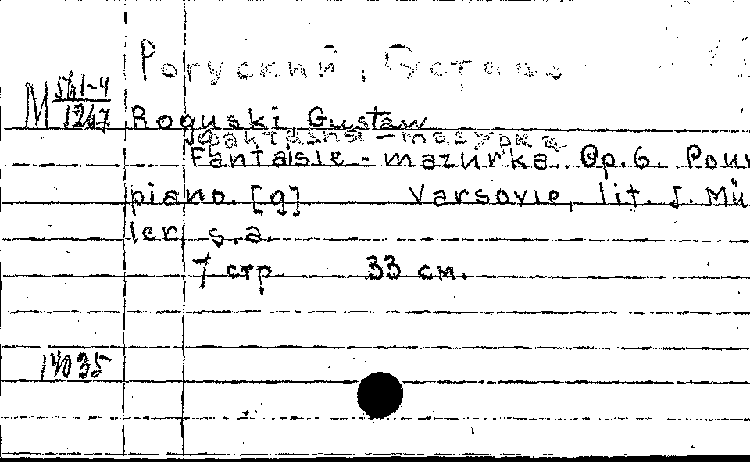 Рогуский, Густав
М 561-4
1267
Roguski Gustaw
Фантазия-мазурка
Fantaisie-mazurka. Op. 6. Pour
piano. [g] Varsovie, lit. J. Mü
ler, s.a.
7 стр 33 см.
14035